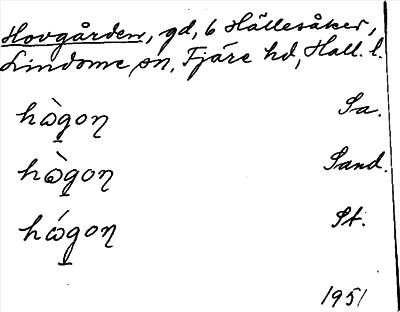 Hovgården, gd, 6 Hällesåker,
Lindome sn, Fjäre hd, Hall. l.
hὼgoη Sa.
hὼgoη Sand.
hώgoη St.
1951